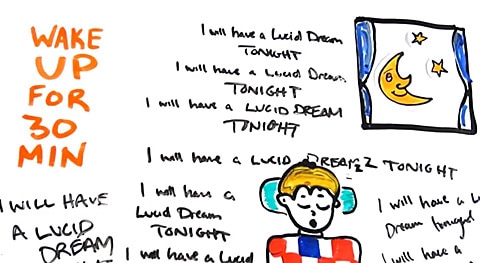 WAKE
UP
FOR
30
MIN
I will have a Lucid Dream
TONIGHT
I will have a Lucid Dream
TONIGHT
I will have a LUCID DREAM
TONIGHT
I will have a LUCID DREAMZZ TONIGHT
I WILL HAVE
A LUCID
DREAM
I will have a
Lucid Dream
TONIGHT
I will have a Lucid
I will have a L
Dream tonight
I will have a